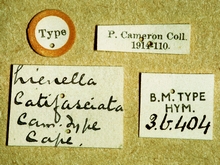 Type
P. Cameron Coll.
1914-110.
Lienella
Latifasciata
Cam. Type
Cape.
B.M. TYPE
HYM.
3.b.404